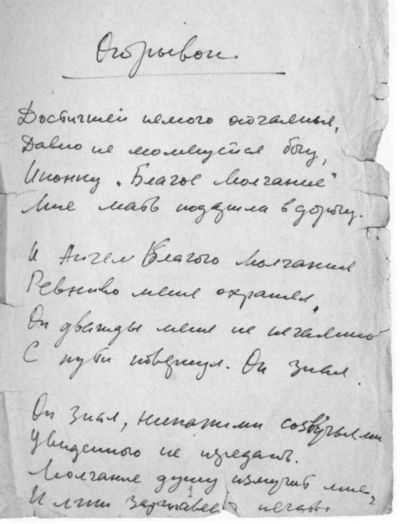 Отрывок.
Достигшей немого отчаянья,
Давно не молящейся богу,
Иконку „Благое Молчание“
Мне мать подарила в дорогу.
И Ангел Благого Молчания
Ревниво меня охранял.
Он дважды меня не нечаянно
С пути повернул. Он знал.
Он знал, никакими созвучьями
Увиденного не передать.
Молчание душу измучит мне,
И лишь заржавеет печать.